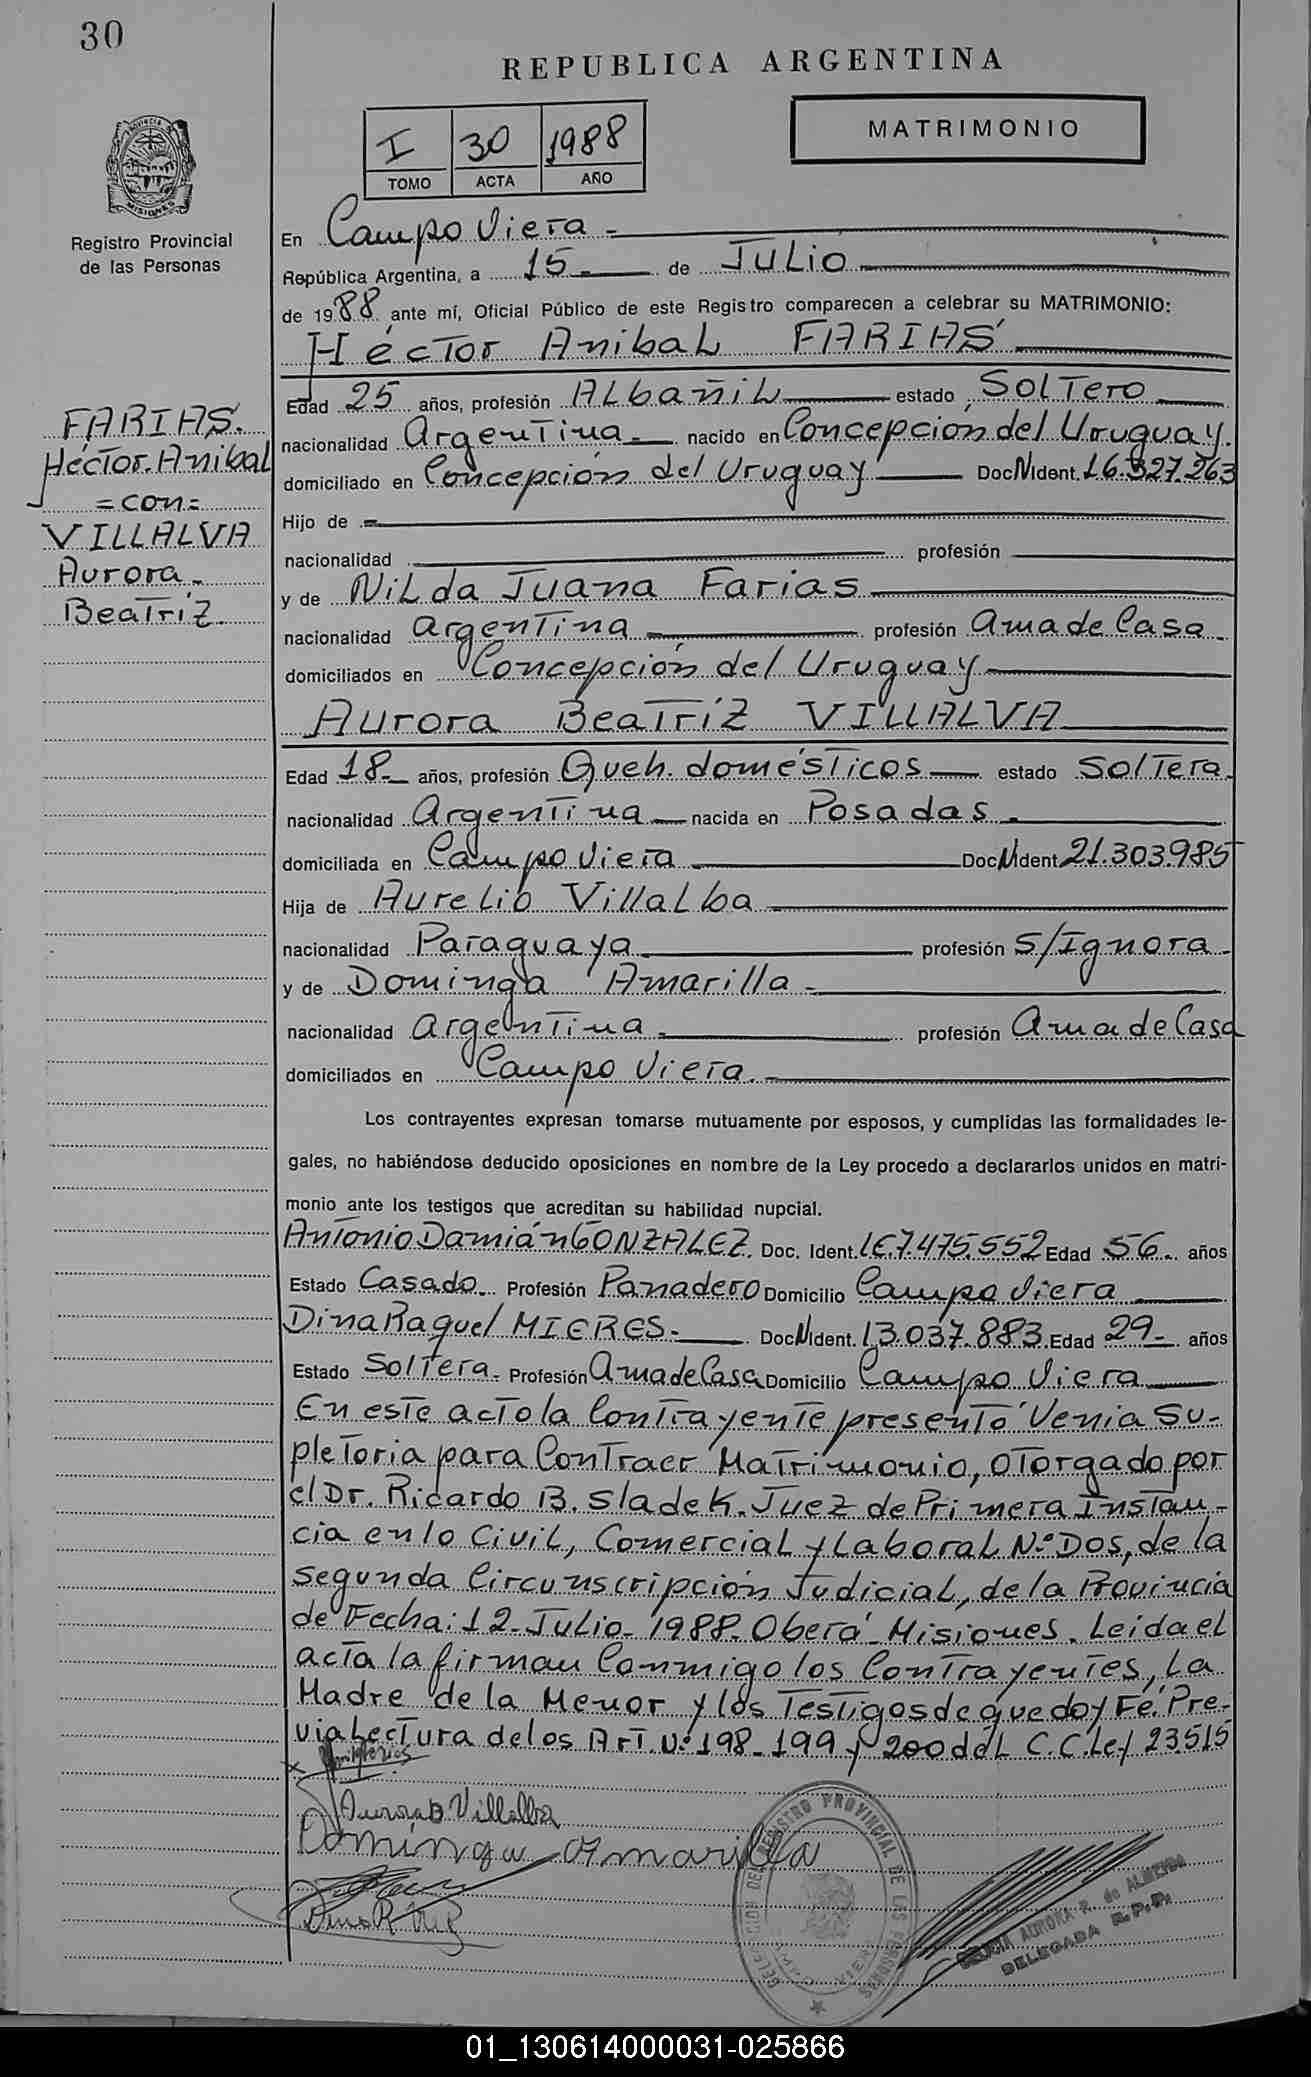 30
REPUBLICA ARGENTINA
I 30 1988
TOMO ACTA AÑO
MATRIMONIO
PROVINCIA
MISIONES
Registro Provincial
de las Personas
En Campo Viera -
República Argentina, a 15 - de Julio
de 1988 ante mí, Oficial Público de este Registro comparecen a celebrar su MATRIMONIO:
Héctor Anibal FARIAS
Edad 25 años, profesión Albañil estado Soltero
nacionalidad Argentina - nacido en Concepción del Uruguay.
domiciliado en Concepción del Uruguay Doc N Ident. 16.327.263
Hijo de -
nacionalidad profesión
y de Nilda Juana Farias
nacionalidad argentina profesión Ama de Casa -
domiciliados en Concepción del Uruguay
Aurora Beatríz VILLALVA
Edad 18 - años, profesión Queh. domésticos estado Soltera
nacionalidad Argentina nacida en Posadas -
domiciliada en Campo Viera Doc N Ident 21.303.985
Hija de Aurelio Villalba
nacionalidad Paraguaya profesión S/Ignora -
y de Dominga Amarilla -
nacionalidad argentina - profesión Ama de Casa
domiciliados en Campo Viera. -
Los contrayentes expresan tomarse mutuamente por esposos, y cumplidas las formalidades le-
gales, no habiéndose deducido oposiciones en nombre de la Ley procedo a declararlos unidos en matri-
monio ante los testigos que acreditan su habilidad nupcial.
Antonio Damián GONZALEZ. Doc. Ident. L.E.7.475.552 Edad 56 - años
Estado Casado. Profesión Panadero Domicilio Campo Viera
Dina Raquel MIERES - Doc N Ident. 13.037.883 Edad 29 - años
Estado Soltera - Profesión Ama de Casa Domicilio Campo Viera
En este acto la Contrayente presentó Venia Su-
pletoria para Contraer Matrimonio, otorgado por
el Dr. Ricardo B. Sladek. Juez de Primera Instan-
cia en lo Civil, Comercial y Laboral Nº Dos, de la
segunda Circunscripción Judicial, de la Provincia
de Fecha: 12 - Julio - 1988 - Oberá - Misiones. Leída el
acta la firman Conmigo los Contrayentes, la
Madre de la Menor y los Testigos de que doy Fé. Pre-
via Lectura de los Art. Nº 198 - 199 y 200 del C.C. Ley 23515
Aurora B Villalba
Dominga Amarilla
Dina R
REGISTRO PROVINCIAL DE LAS PERSONAS
DELICIA AURORA R. de ALMEIDA
DELEGADA R.P.P.
FARIAS.
Héctor. Anibal
= con =
VILLALVA
Aurora -
Beatríz.
01_130614000031-025866